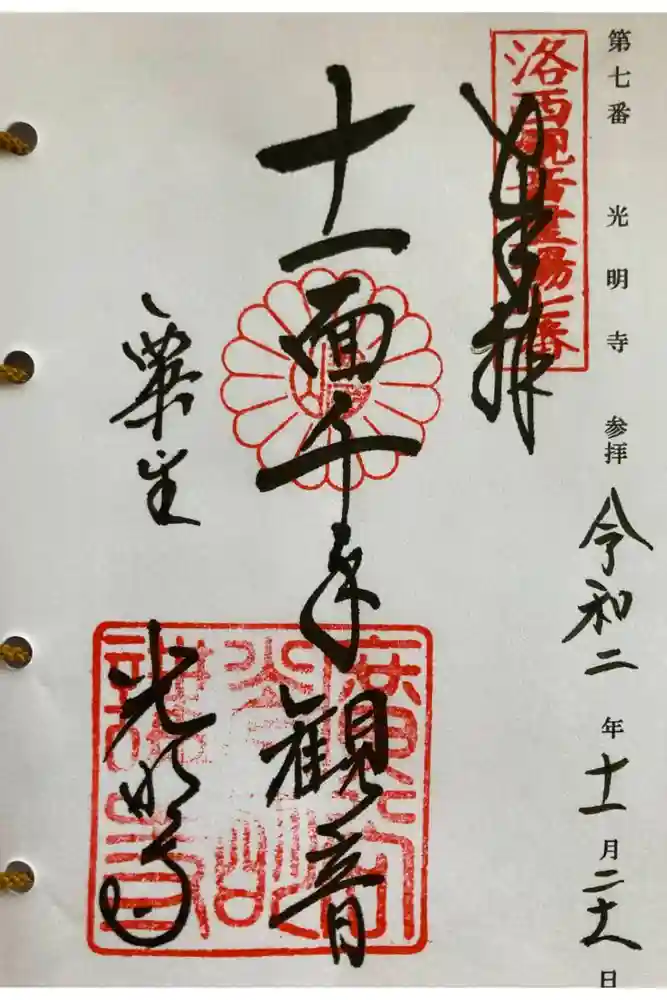 第七番 光明寺 参拝 令和二年十一月二十八日
洛西観音霊場七番
奉拝
十一面千手観音
粟生
光明寺